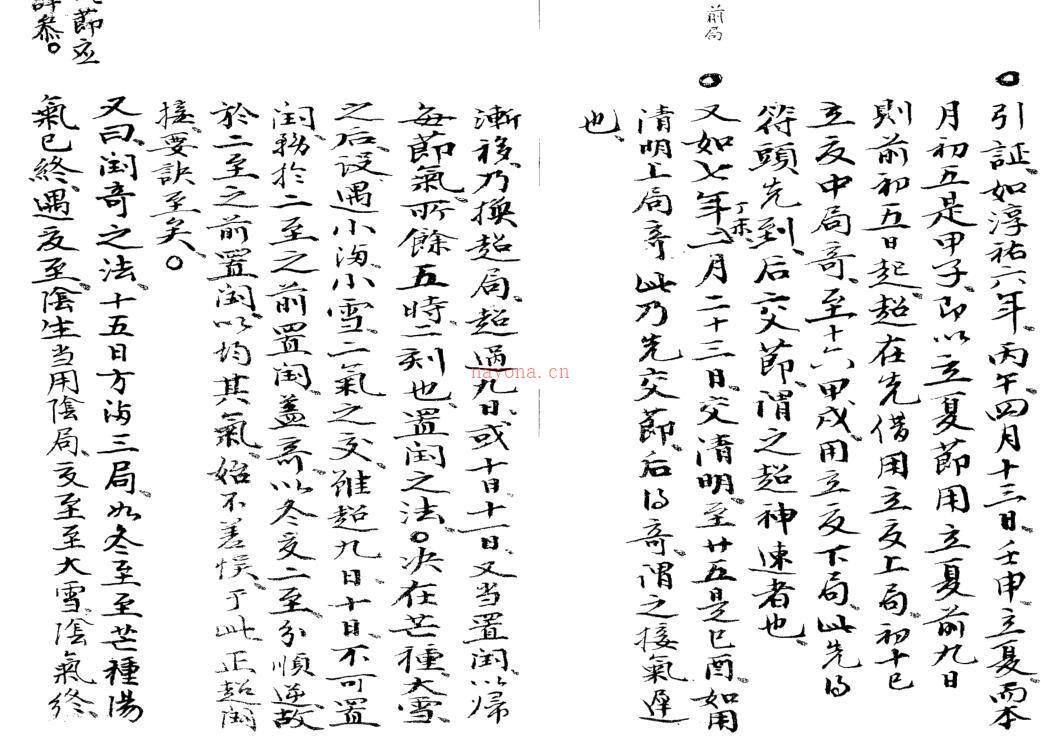 前局
引証如淳祐六年丙午四月十三日壬申立夏而本
月初五是甲子即以立夏節用立夏前九日
則前初五日起超在先借用立夏上局初十己
立夏中局奇至十六甲戌用立夏下局此先得
符頭先到后交節謂之超神速者也
又如七年丁未二月二十三日交清明至廿五是己酉如用
清明上局奇此乃先交節后得奇謂之接氣遲
也
漸移乃換超局超過九日或十日十一日又当置闰以歸
每節氣所餘五時二刻也置闰之法決在芒種大雪
之后设遇小滿小雪二氣之交雖超九日十日不可置
闰務於二至之前置闰蓋奇以冬夏二至分順逆故
於二至之前置闰以均其氣始不差悮了此正超闰
接要訣至矣
又曰闰奇之法十五日方満三局如冬至至芒種陽
氣已終遇夏至陰生当用陰局夏至至大雪陰氣終
節应
詳叅
nayona.cn